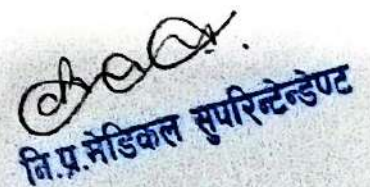 नि.प्र.मेडिकल सुपरिन्टेन्डेण्ट